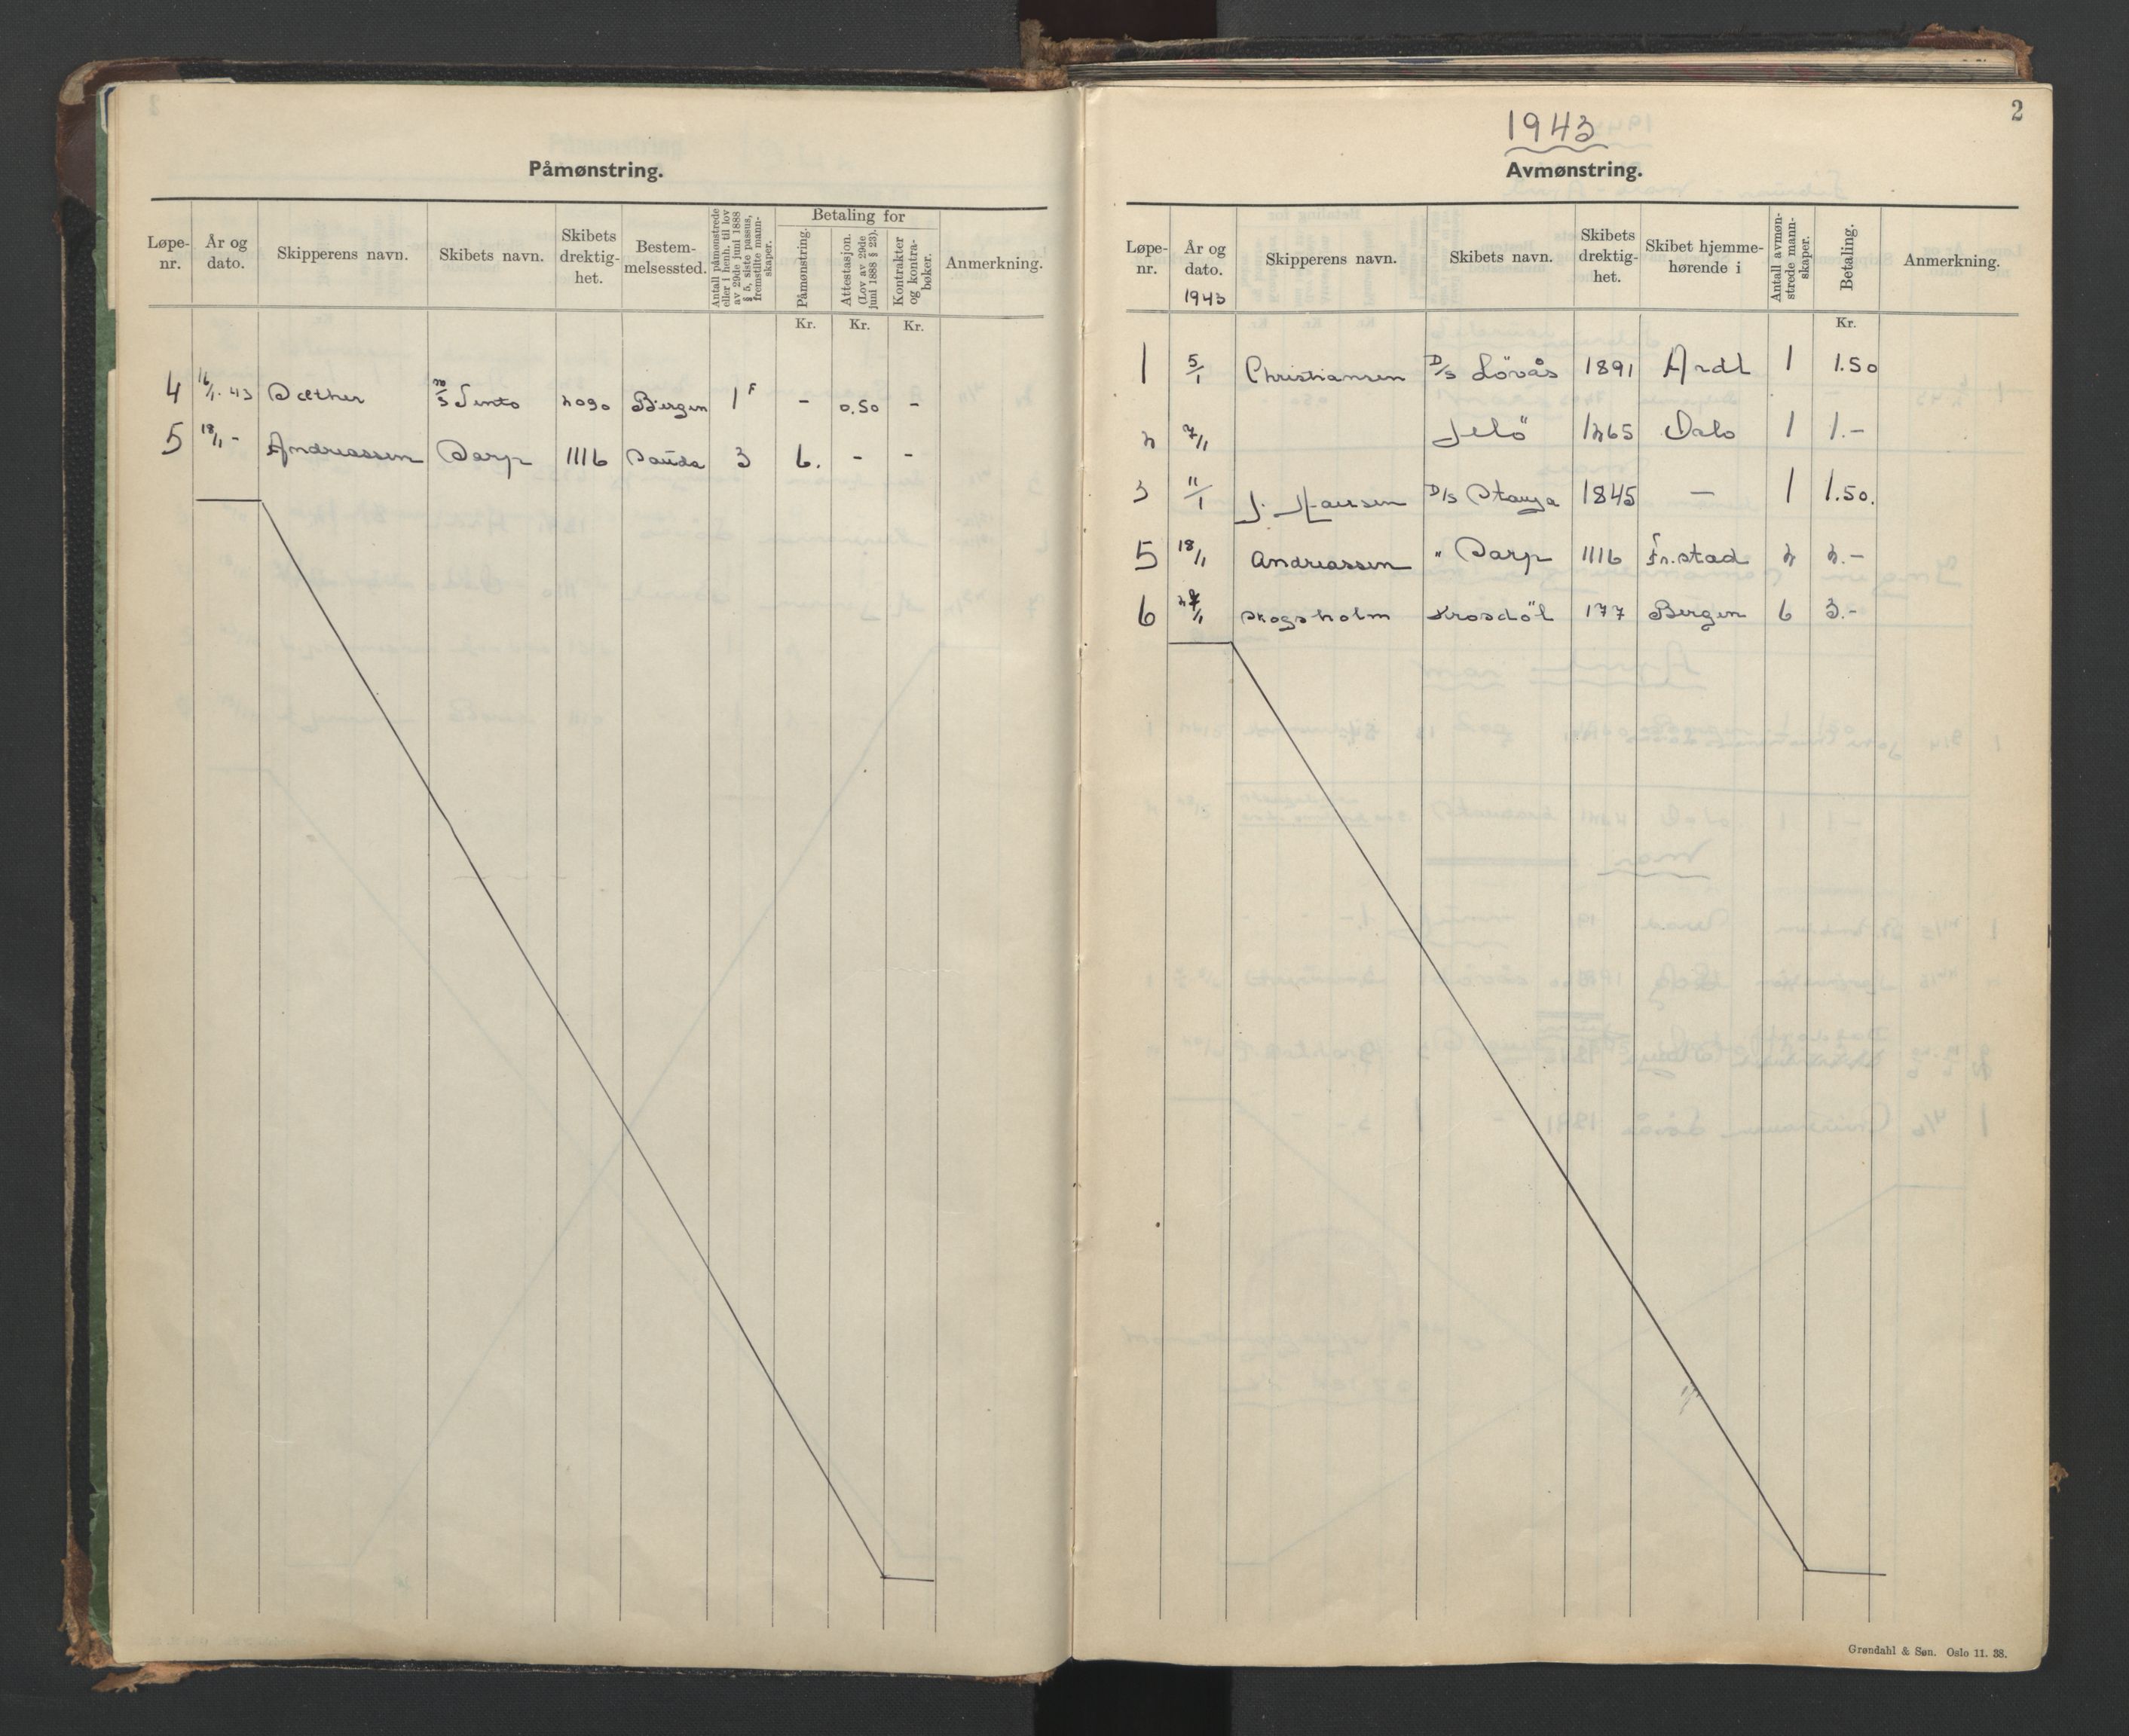 Påmønstring.
Løpe-nr. År og dato. Skipperens navn. Skibets navn. Skibets drektig-het. Bestem-melsessted. Antall påmønstrede eller i henh. til lov av 29de juni 1888 § 5, siste passus, fremstilte mann-skaper. Betaling for Påmønstring. Attestasjon. (Lov av 29de juni 1888 § 23). Kontrakter og kontra-bøker. Anmerkning.
Kr. Kr. Kr.
4 16/1. 43 Sæther M/S Sento 2090 Bergen 1 F - 0.50 -
5 18/1 - Andreassen Sarp 1116 Sauda 3 6. - -
2
1943
Avmønstring.
Løpe-nr. År og dato. 1943 Skipperens navn. Skibets navn. Skibets drektig-het. Skibet hjemme-hørende i Antall avmøn-strede mann-skaper. Betaling. Anmerkning.
Kr.
1 5/1 Christiansen D/S Lövås 1891 Ardl 1 1.50
2 7/1 Jelö 1265 Oslo 1 1.-
3 11/1 J. Hansen D/S Stanja 1845 — 1 1.50.
5 18/1 Andreassen " Sarp 1116 Fr.stad 2 2.-
6 Skogsholm Krosdöl 177 Bergen 6 3.-
Grøndahl & Søn. Oslo 11. 38.